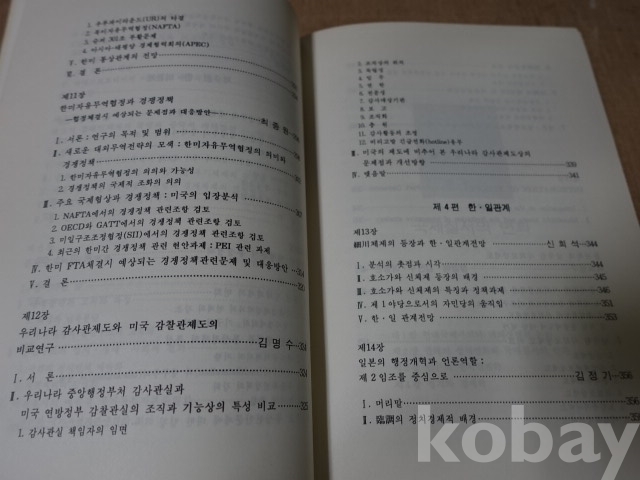 1. 우루과이라운드(UR)의 타결
2. 북미자유무역협정(NAFTA)
3. 슈퍼 301조 부활문제
4. 아시아·태평양 경제협력회의(APEC)
Ⅳ. 한미 통상관계의 전망
Ⅴ. 결 론
제11장
한미자유무역협정과 경쟁정책
—협정체결시 예상되는 문제점과 대응방안 최종원
Ⅰ. 서론 : 연구의 목적 및 범위
Ⅱ. 새로운 대외무역전략의 모색 : 한미자유무역협정의 의미와
경쟁정책
1. 한미자유무역협정의 의의와 가능성
2. 경쟁정책의 국제적 조화의 의의
Ⅲ. 주요 국제협상과 경쟁정책 : 미국의 입장분석
1. NAFTA에서의 경쟁정책 관련조항 검토
2. OECD와 GATT에서의 경쟁정책 관련조항 검토
3. 미일구조조정협정(SII)에서의 경쟁정책 관련조항 검토
4. 최근의 한미간 경쟁정책 관련 현안과제 : PEI 관련 과제
Ⅳ. 한미 FTA체결시 예상되는 경쟁정책관련문제 및 대응방안
Ⅴ. 결 론
제12장
우리나라 감사관제도와 미국 감찰관제도의
비교연구 김명수
Ⅰ. 서 론 324
Ⅱ. 우리나라 중앙행정부처 감사관실과
미국 연방정부 감찰관실의 조직과 기능상의 특성 비교 325
1. 감사관실 책임자의 임면
2. 조직상의 위치
3. 독립성
4. 임무
5. 권한
6. 전문성
7. 감사대상기관
8. 보고
9. 조직화
10. 충원
11. 감사활동의 조정
12. 비리고발 긴급전화(hotline)용무
Ⅲ. 미국의 제도에 비추어 본 우리나라 감사관제도상의
문제점과 개선방향 339
Ⅳ. 맺음말 341
제 4 편 한·일관계
제13장
細川체제의 등장과 한·일관계전망 신희석 344
Ⅰ. 분석의 촛점과 시각 344
Ⅱ. 호소가와 신체제 등장의 배경 345
Ⅲ. 호소가와 신체제의 특징과 정책과제
Ⅳ. 제 1 야당으로서의 자민당의 움직임 351
Ⅴ. 한·일 관계전망 353
제14장
일본의 행정개혁과 언론역할 :
제 2 임조를 중심으로 김정기 356
Ⅰ. 머리말 356
Ⅱ. 臨調의 정치경제적 배경
kobay